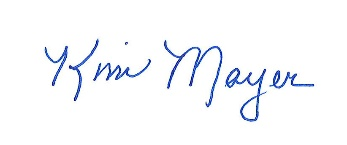 Kim Mayer